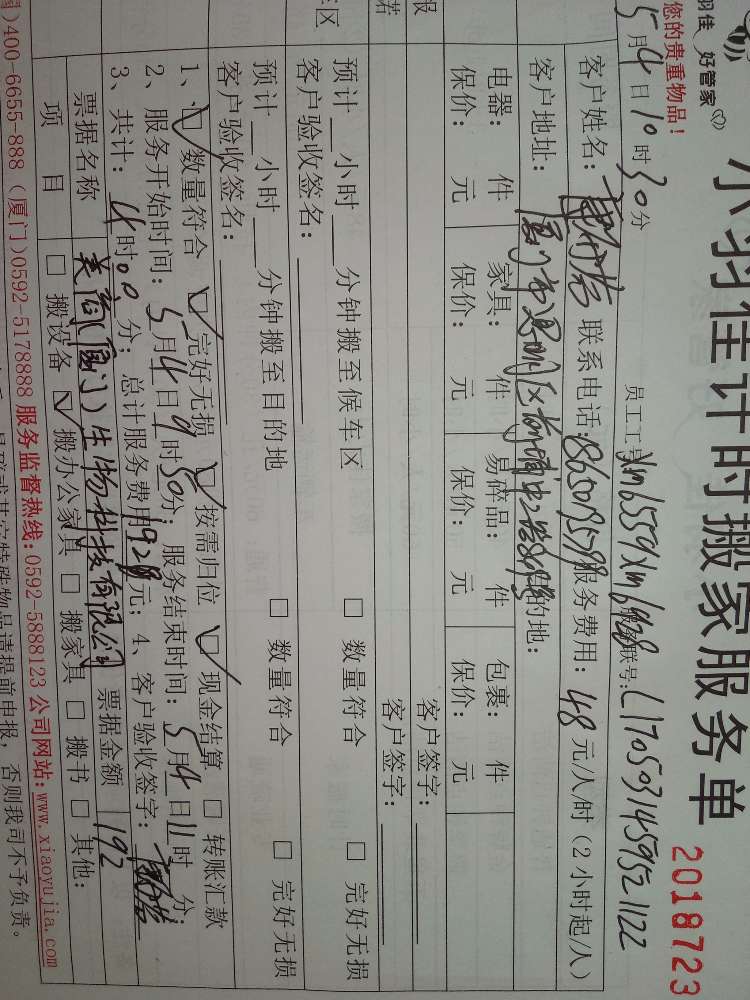 羽佳 好管家
小羽佳计时搬家服务单
2018723
您的贵重物品!
5月4日10时30分
员工工号
联号: L170503145952 1122
客户姓名:
联系电话:
服务费用: 48 元/人/时(2小时起/人)
客户地址:
的地:
电器: 件 家具: 件 易碎品: 件 包裹: 件
保价: 元 保价: 元 保价: 元 保价: 元
报
客户签字:
若
客户签字:
车区
预计 小时 分钟搬至候车区 □ 数量符合 □ 完好无损
客户验收签名:
预计 小时 分钟搬至目的地 □ 数量符合 □ 完好无损
客户验收签名:
1、□ 数量符合 □ 完好无损 □ 按需归位 □ 现金结算 □ 转账汇款
2、服务开始时间: 5月4日9时30分; 服务结束时间: 5月4日11时 分;
3、共计: 4时00分; 总计服务费用192元; 4、客户验收签字:
票据名称 美商(厦门)生物科技有限公司 票据金额 192
项 目 □ 搬设备 □ 搬办公家具 □ 搬家具 □ 搬书 □ 其他:
国)400-6655-888 (厦门)0592-5178888 服务监督热线:0592-5888123 公司网站:www.xiaoyujia.com
其它特殊物品请提前申报, 否则我司不予负责。